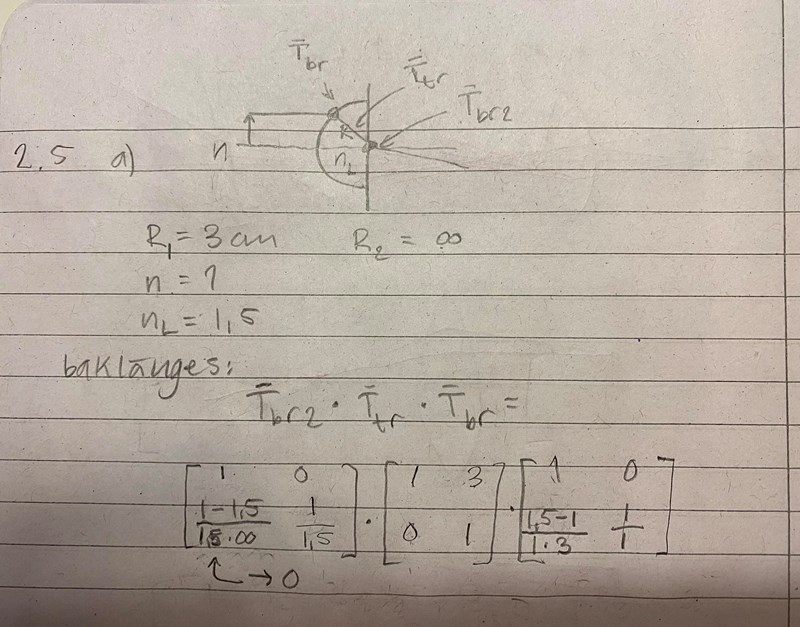 T̄br T̄tr T̄br2
2.5 a) n R nL
R1 = 3 cm R2 = ∞
n = 1
nL = 1,5
baklänges:
T̄br2 · T̄tr · T̄br =
[1 0; (1-1,5)/(1,5·∞) 1/1,5] · [1 3; 0 1] · [1 0; (1,5-1)/(1·3) 1/1]
→ 0